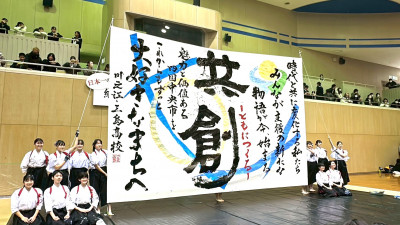 時代と共に変化する私たち
みんなが主役の新たな
物語が今始まる
共創
〜ともにつくる〜
魅力と価値ある
四国中央市を
これからもずっと
大好きなまちへ
川之江・三島高校